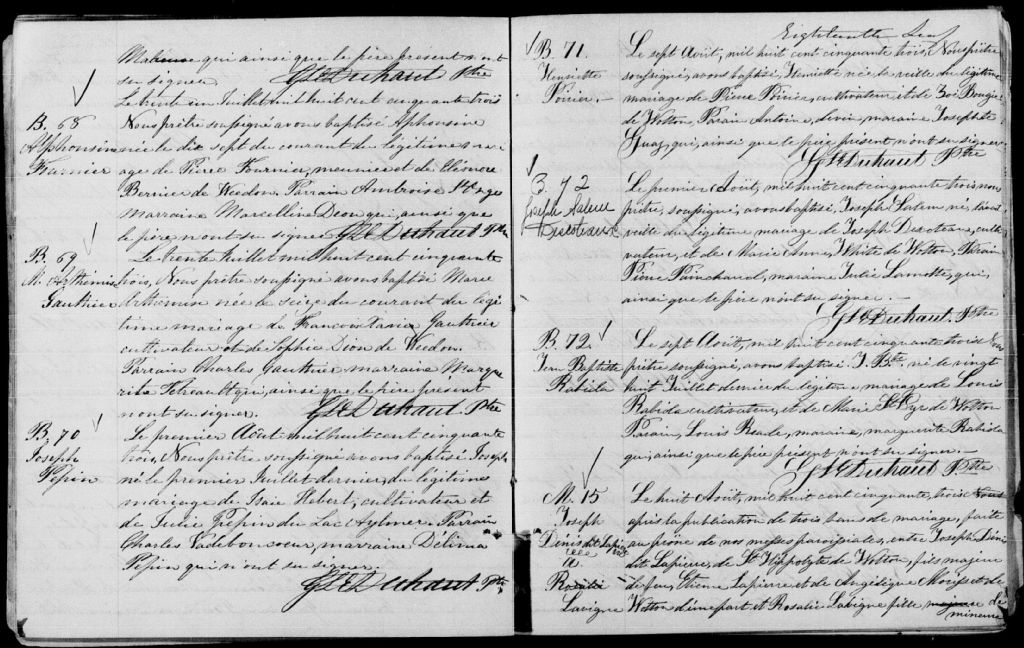 qui ainsi que le père présent n'ont
su signer. G. E. Duhaut Ptre
B. 68
Alphonsine
Fournier
Le trente un Juillet mil huit cent cinquante trois
Nous prêtre soussigné avons baptisé Alphonsine
née le dix sept du courant du légitime mari
age de Pierre Fournier, meunier et de Eléonore
Bernier de Weedon. Parrain Ambroise St Onge
marraine Marcelline Dion qui, ainsi que
le père n'ont su signer G. E. Duhaut Ptre
B. 69
M. Arthemise
Gauthier
Le trente Juillet mil huit cent cinquante
trois, Nous prêtre soussigné avons baptisé Marie
née le seize du courant du légi
time mariage de François Xavier Gauthier
cultivateur et de Sophie Dion de Weedon.
Parrain Charles Gauthier marraine Margue
rite qui, ainsi que le père présent
n'ont su signer. G. E. Duhaut Ptre
B. 70
Joseph
Pepin
Le premier Août mil huit cent cinquante
trois, Nous prêtre soussigné avons baptisé Joseph
né le premier Juillet dernier, du légitime
mariage de Isaie Hebert, cultivateur et
de Julie Pepin du Lac Aylmer. Parrain
Charles Vadeboncoeur, marraine Délima
Pepin qui n'ont su signer.
G. E. Duhaut Ptre
Eighteenth
B. 71.
Henriette
Poirier.-
Le sept Août, mil huit cent cinquante trois, Nous prêtre
soussigné, avons baptisé, Henriette née la veille du légitime
mariage de Pierre Poirier, cultivateur et de Zoé
de Wotton, Parain Antoine, maraine Josephte
qui, ainsi que le père présent n'ont su signer
G. E. Duhaut Ptre
B. 72
Joseph Salem
Le premier Août, mil huit cent cinquante trois, nous
prêtre, soussigné, avons baptisé, Joseph Salem né, l'avant
veille du légitime mariage de Joseph culti
vateur, et de Marie Anne White de Wotton, Parain
Pierre maraine Julie qui,
ainsi que le père n'ont su signer.-
G. E. Duhaut. Ptre
B. 72.
Jean Baptiste
Rabida
Le sept Août, mil huit cent cinquante trois Nous
prêtre soussigné, avons baptisé. J. Bte. né le vingt
huit Juillet dernier du légitime mariage de Louis
Rabida cultivateur, et de Marie St Cyr de Wotton
Parain, Louis maraine, marguerite Rabida
qui, ainsi que le père présent n'ont su signer.-
G. E. Duhaut Ptre
M. 15
Joseph
Denis dit Lapierre
&
Rosalie
Lavigne
Le huit Août, mil huit cent cinquante, trois Nous
après la publication de trois bans de mariage, faite
au prône de nos messes paroissiales, entre Joseph Deni
dit Lapierre, de St Hippolyte de Wotton, fils majeur
de feu, Etienne Lapierre et de Angélique et de
Wotton d'une part et Rosalie Lavigne fille majeure de
mineure